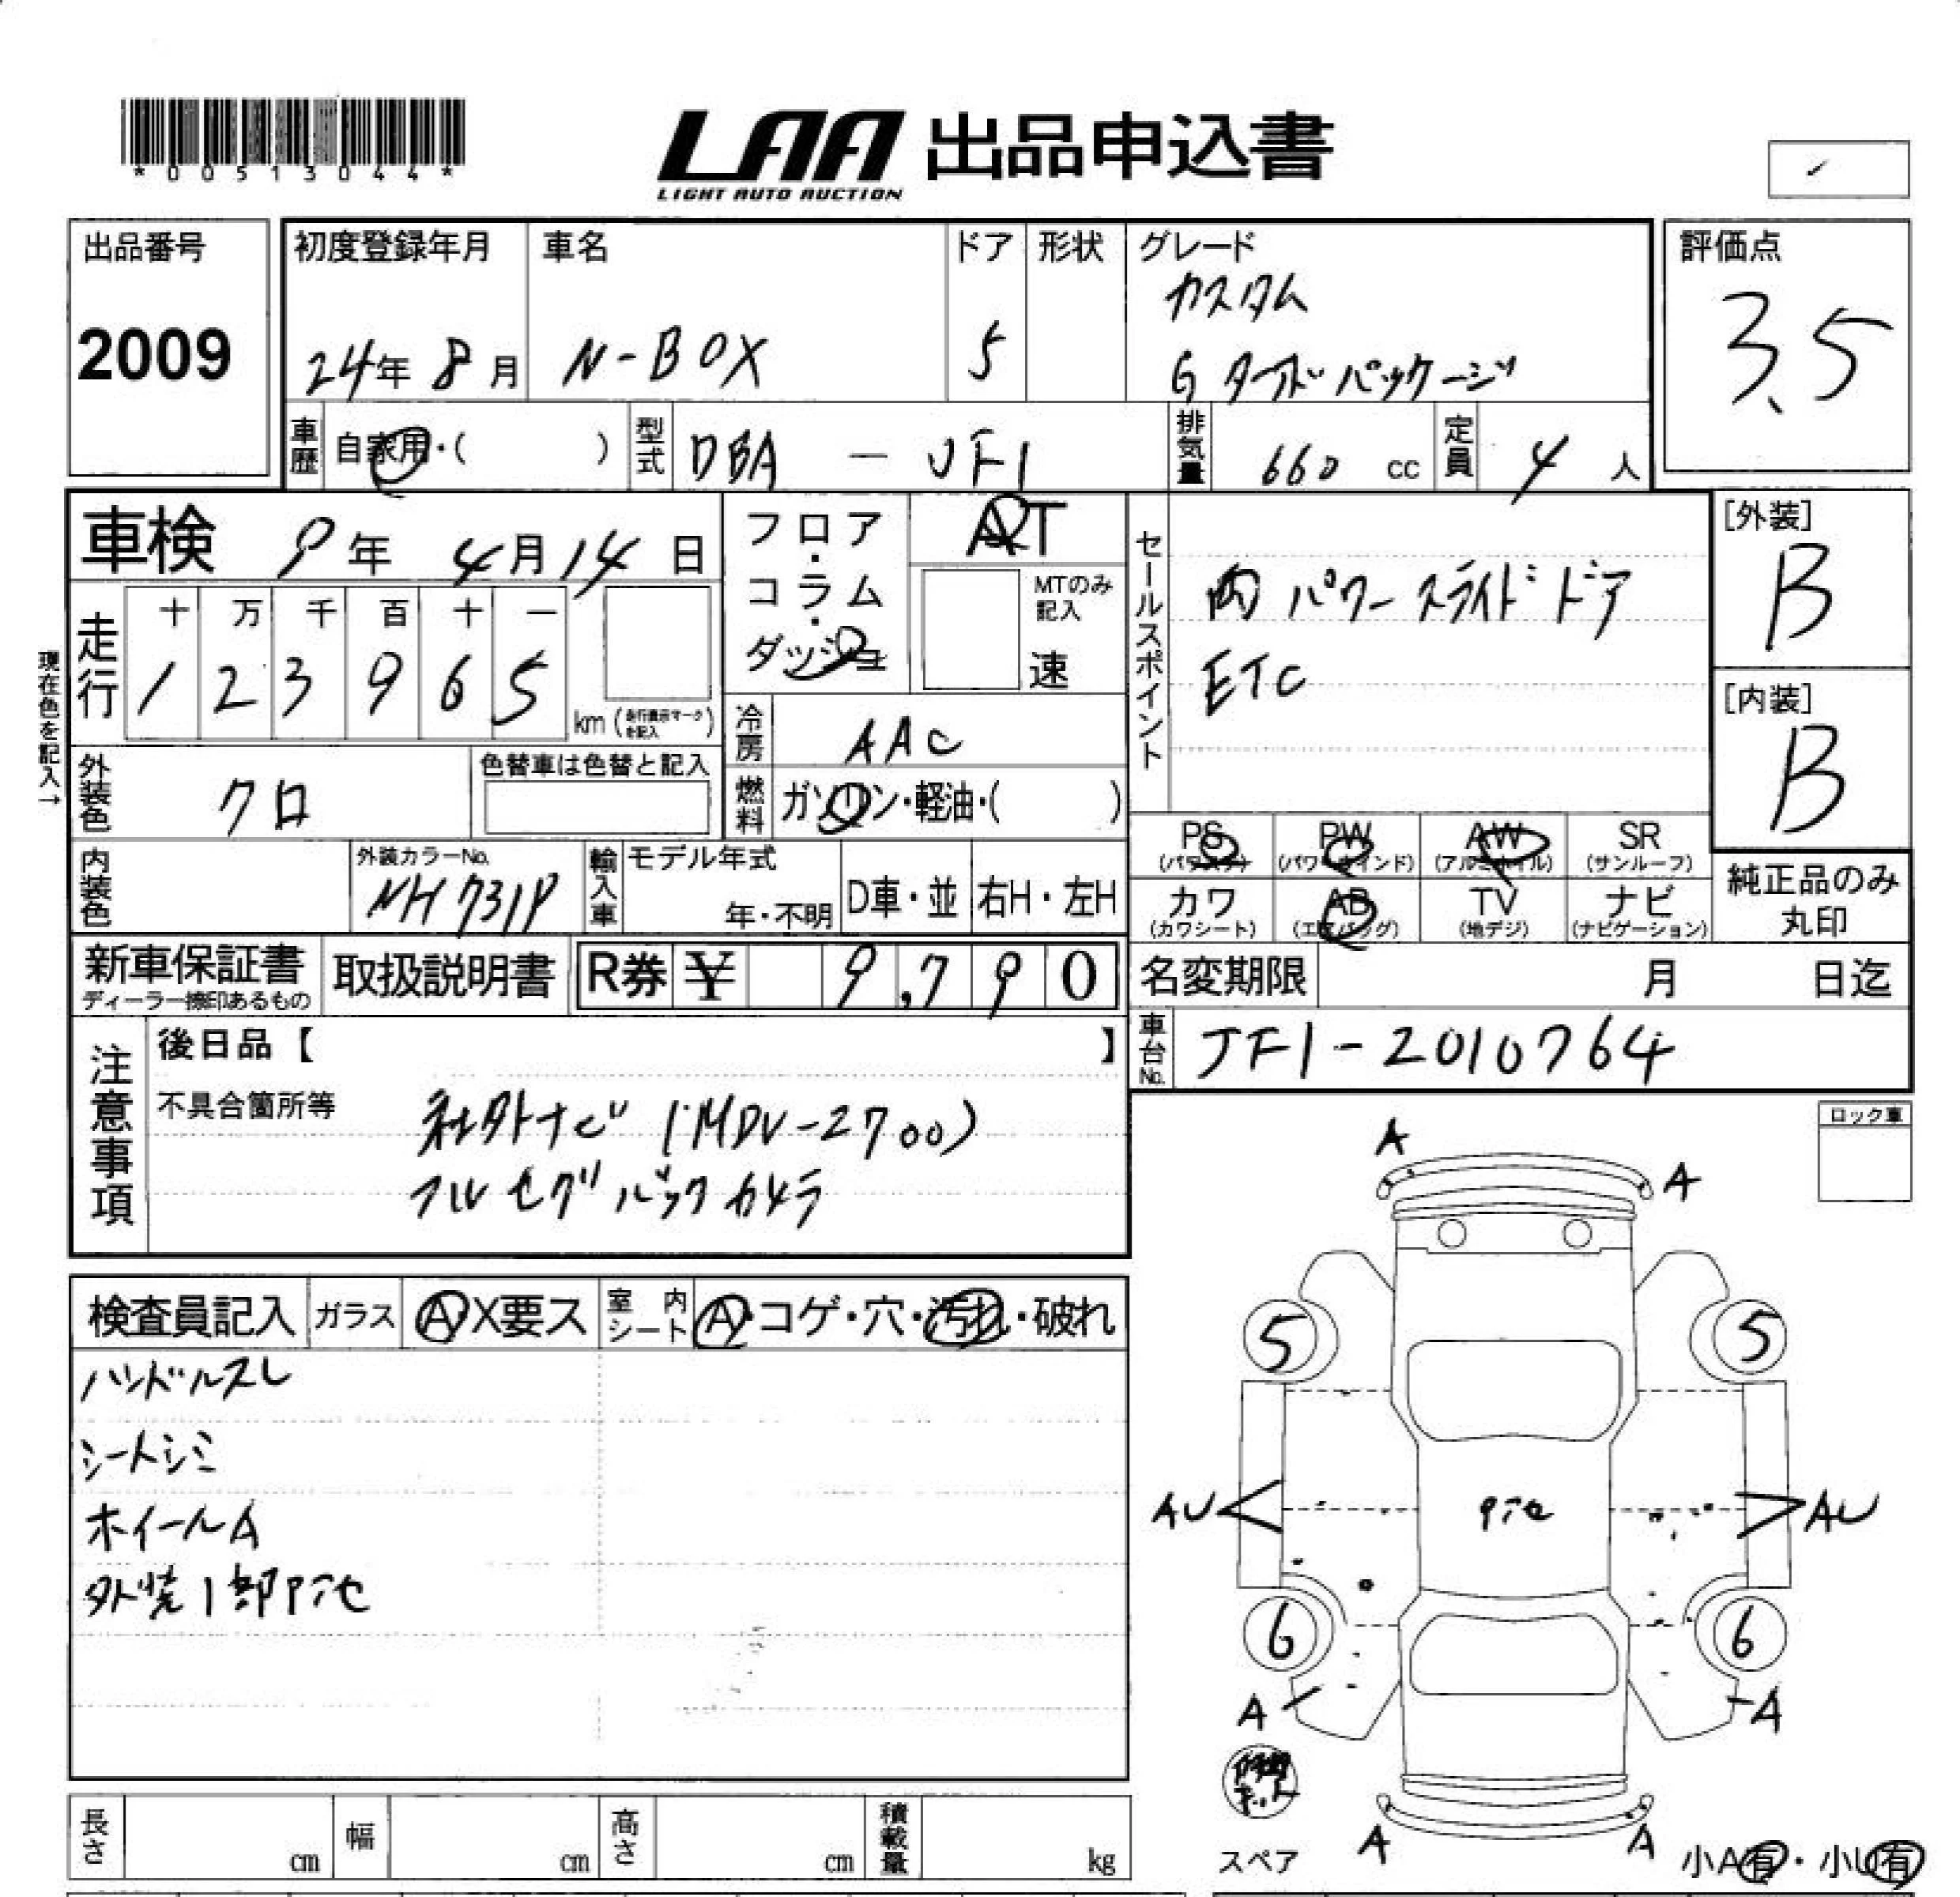 *00513044*
LAA 出品申込書
LIGHT AUTO AUCTION
出品番号
2009
初度登録年月
24年 8月
車名
N-BOX
ドア
5
形状
グレード
カスタム
G ターボパッケージ
評価点
3.5
車歴
自家用・( )
型式
DBA - JF1
排気量
660 cc
定員
4 人
車検 9年 4月 14日
フロア・コラム・ダッシュ
AT
MTのみ記入
速
セールスポイント
両パワースライドドア
ETC
[外装]
B
[内装]
B
現在色を記入→
走行
十 万 千 百 十 一
1 2 3 9 6 5
km (走行表示マークを記入)
冷房
AAC
外装色
クロ
色替車は色替と記入
燃料
ガソリン・軽油・( )
PS
(パワステ)
PW
(パワーウインド)
AW
(アルミホイル)
SR
(サンルーフ)
カワ
(カワシート)
AB
(エアバッグ)
TV
(地デジ)
ナビ
(ナビゲーション)
純正品のみ
丸印
内装色
外装カラーNo.
NH731P
輸入車
モデル年式
年・不明
D車・並
右H・左H
新車保証書
ディーラー捺印あるもの
取扱説明書
R券 ¥ 9,790
名変期限 月 日迄
車台No.
JF1-2010764
注意事項
後日品【 】
不具合箇所等
社外ナビ (MDV-2700)
フルセグ バックカメラ
ロック車
検査員記入
ガラス
A・X要ス
室内シート
A・コゲ・穴・汚れ・破れ
ハンドルスレ
シートシミ
ホイールA
外装1部Pｱセ
A
A
5
5
AU
Pｱセ
AU
6
6
A
A
A
A
スペア
小A有・小U有
長さ cm
幅 cm
高さ cm
積載量 kg